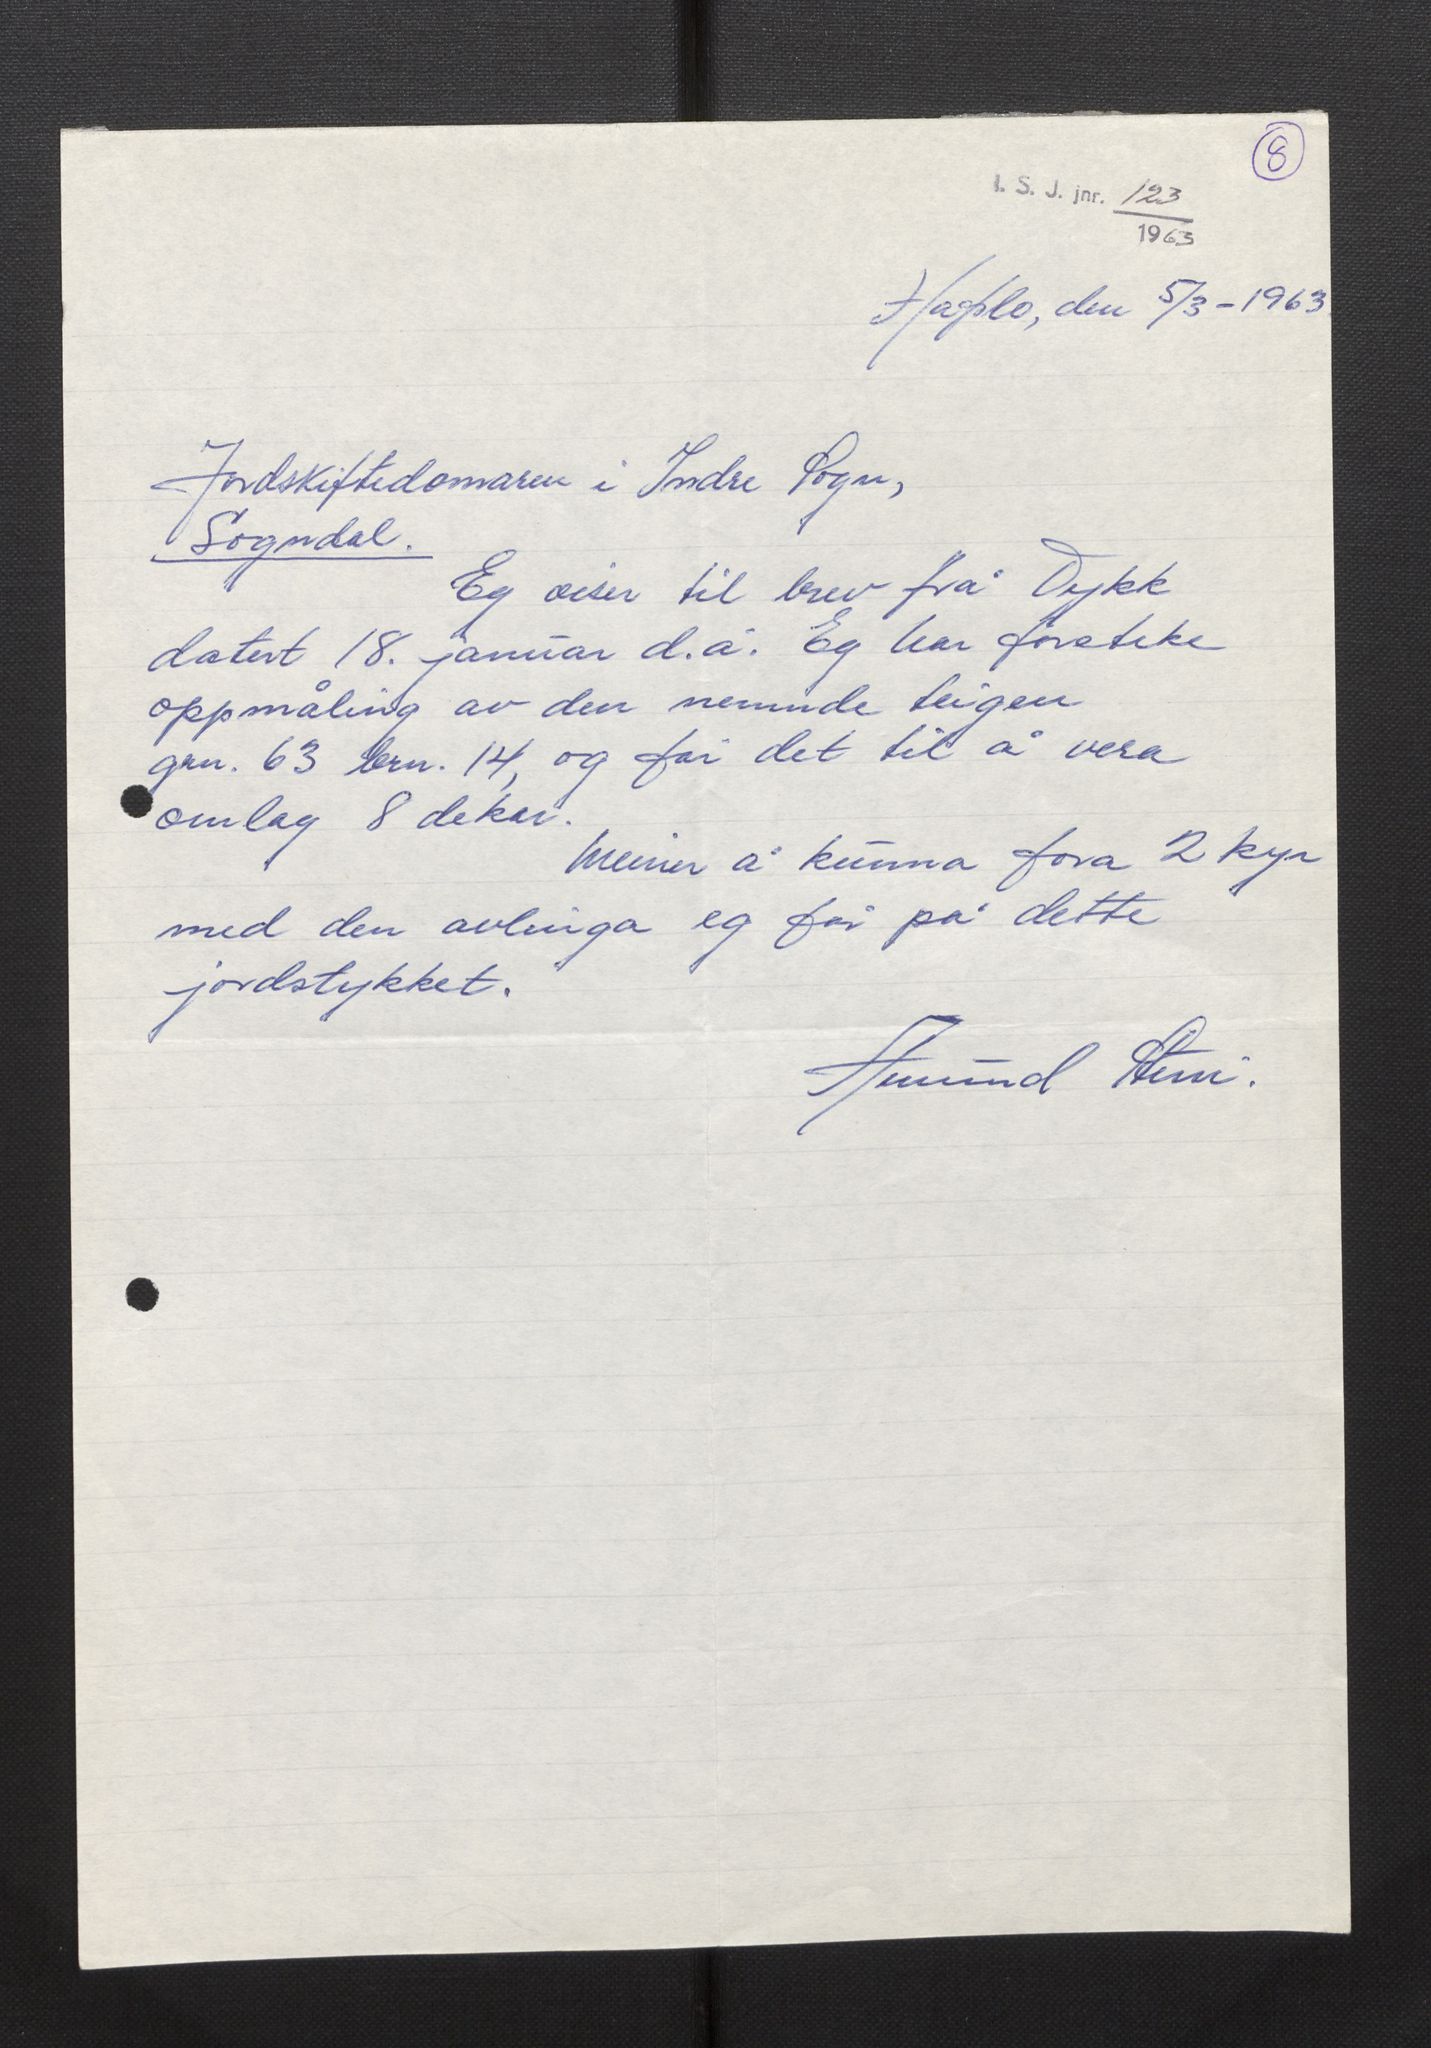 8
I. S. J. jnr. 123
1963
Hafslo, den 5/3-1963
Jordskiftedomaren i Indre Sogn,
Sogndal.
Eg viser til brev frå Dykk
datert 18. januar d.å. Eg har företeke
oppmåling av den nemnde teigen
grn. 63 brn. 14, og får det til å vera
omlag 8 dekar.
Meiner å kunna fora 2 kyr
med den avlinga eg får på dette
jordstykket.
Amund